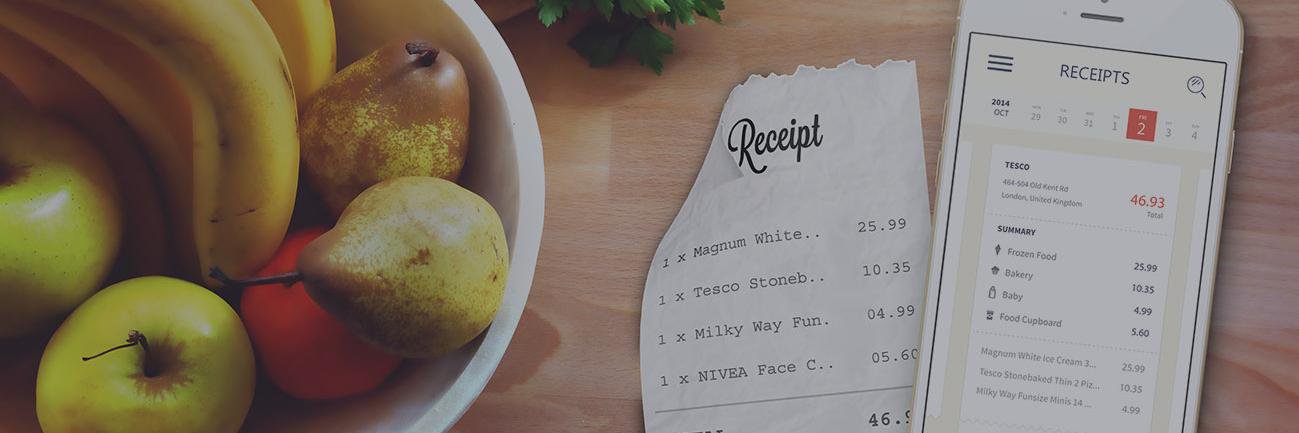 Receipt
1 x Magnum White.. 25.99
1 x Tesco Stoneb.. 10.35
1 x Milky Way Fun. 04.99
1 x NIVEA Face C.. 05.60
46.9
RECEIPTS
2014 OCT
MON 29 TUE 30 WED 31 THU 1 FRI 2 SAT 3 SUN 4
TESCO
464-504 Old Kent Rd
London, United Kingdom
46.93
Total
SUMMARY
Frozen Food 25.99
Bakery 10.35
Baby 4.99
Food Cupboard 5.60
Magnum White Ice Cream 3... 25.99
Tesco Stonebaked Thin 2 Piz... 10.35
Milky Way Funsize Minis 14 ... 4.99